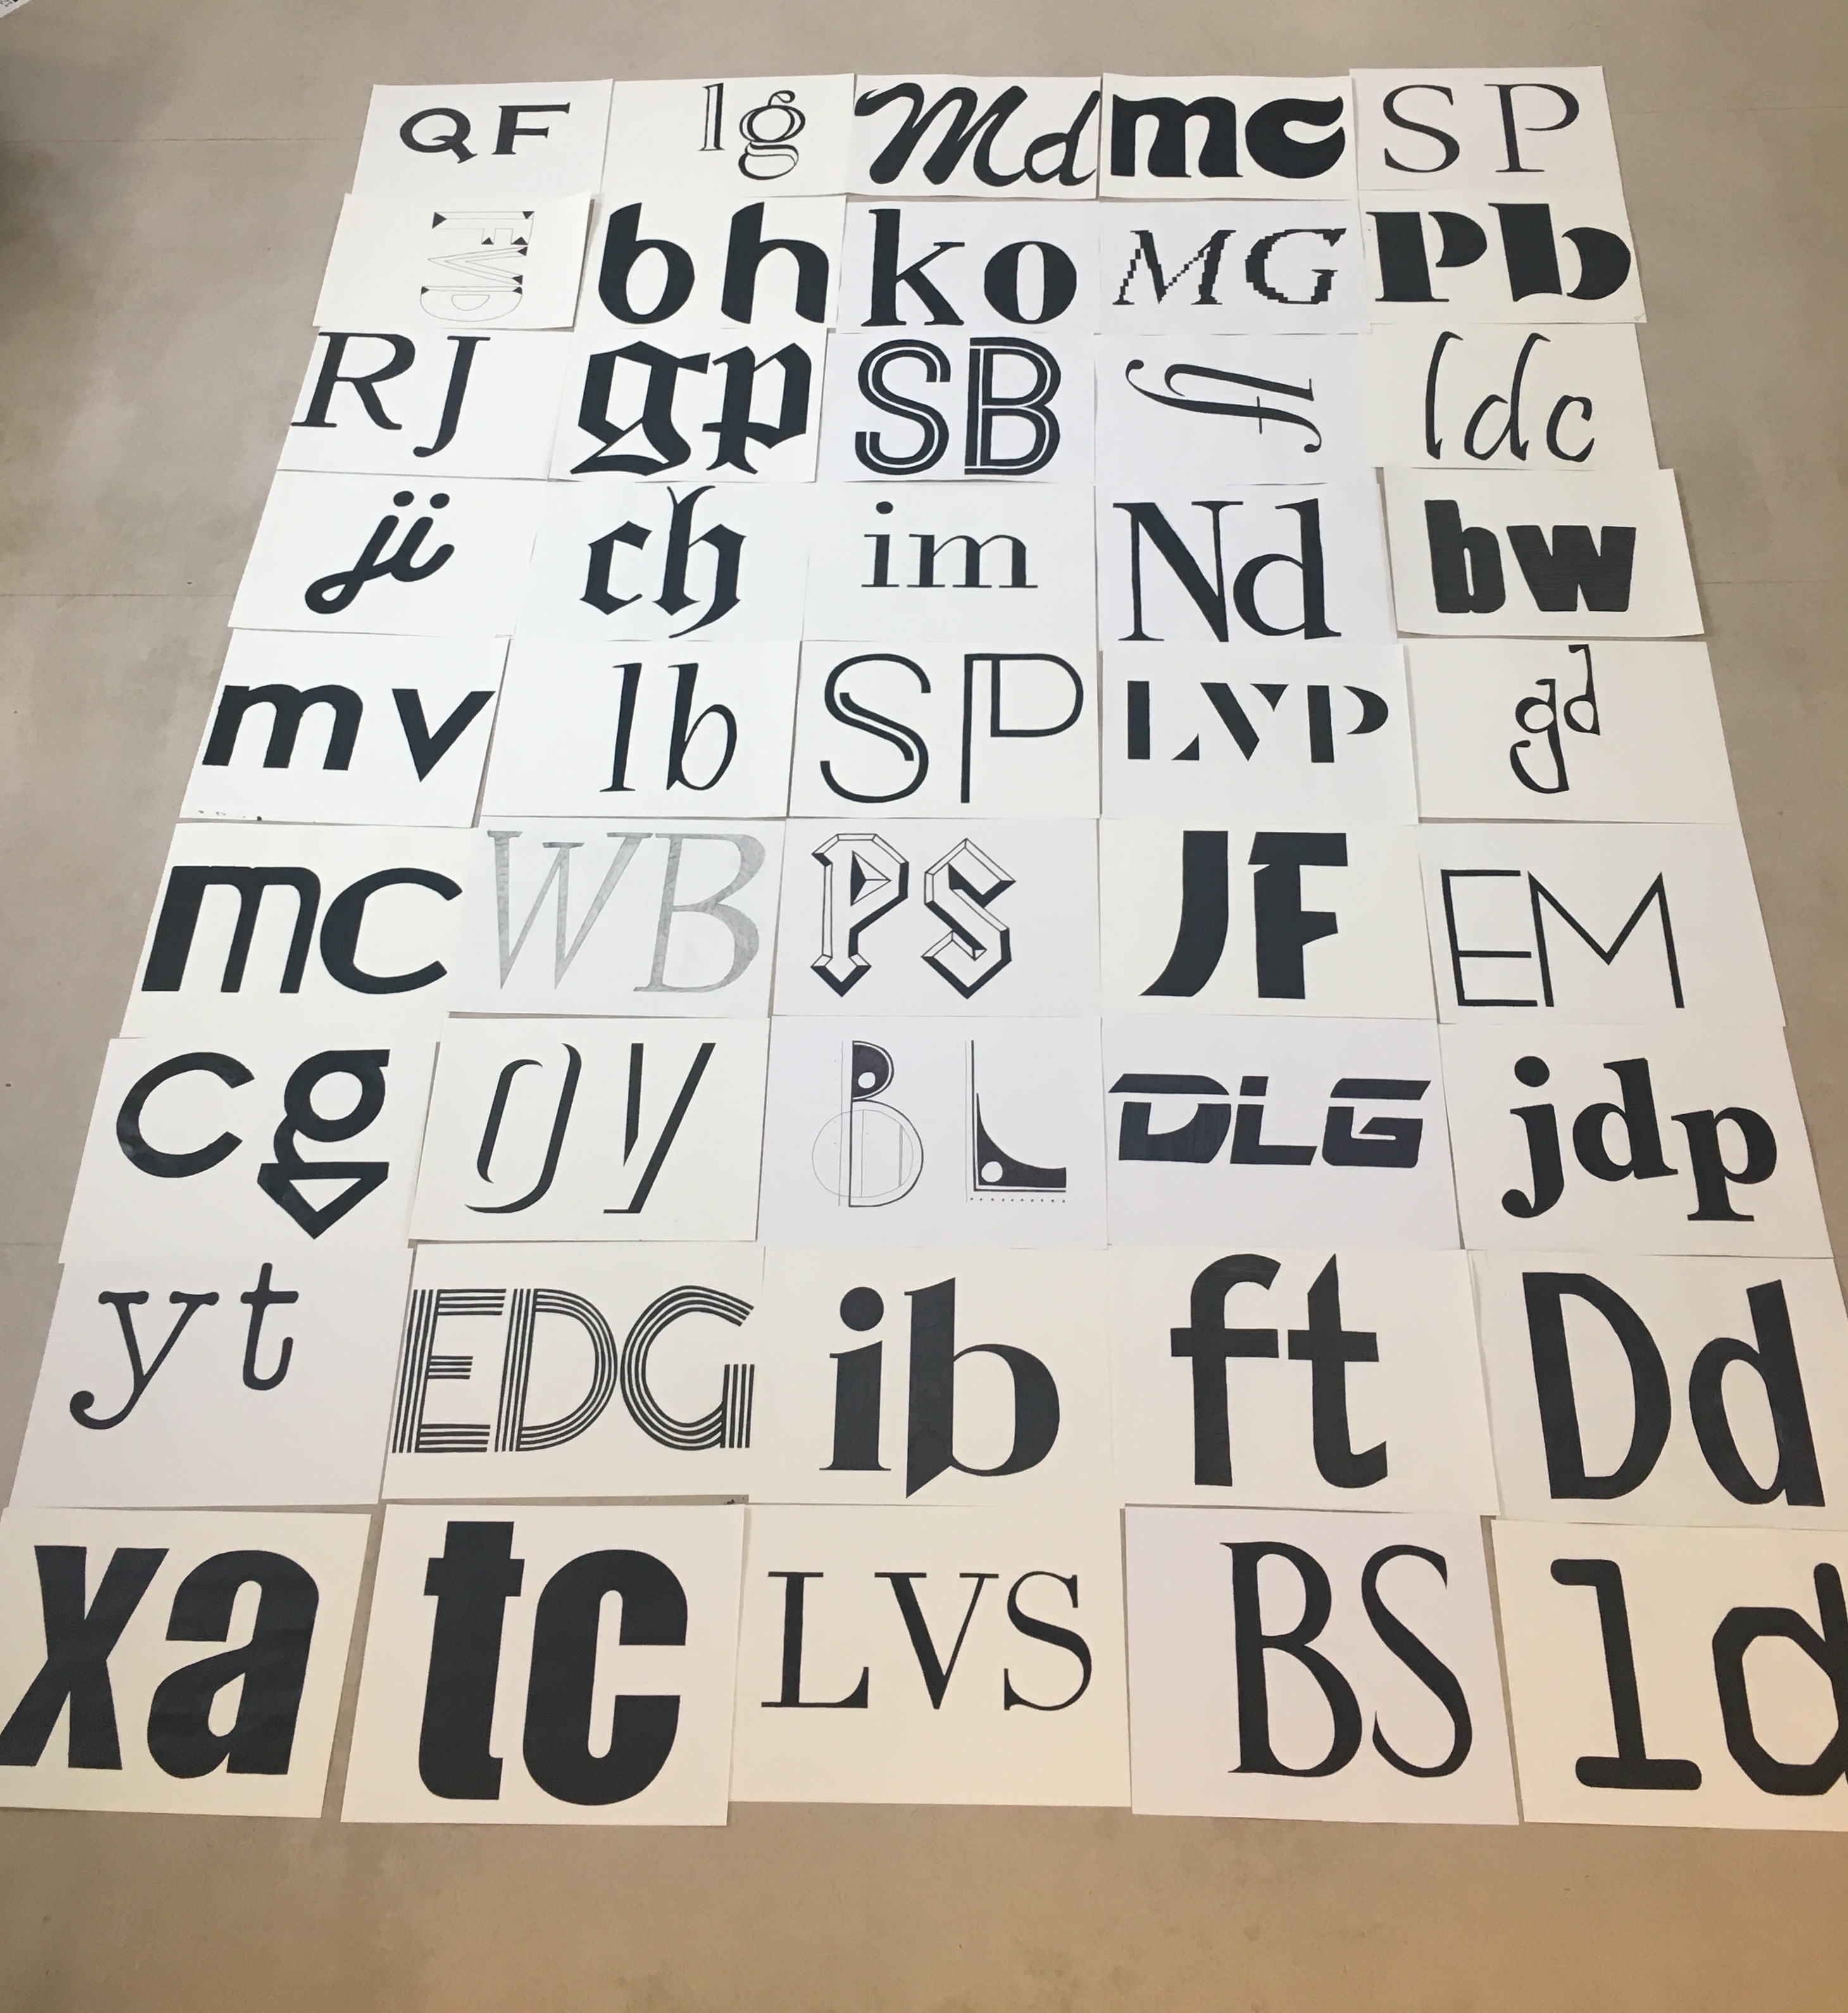 QF lg Md mc SP
FMD bh ko MG Pb
RJ gp SB ldc
ji ch im Nd bw
mv lb SP LVP gd
mc WB PS JF EM
cg OV BL DLG jdp
yt EDG ib ft Dd
xa tc LVS BS ld